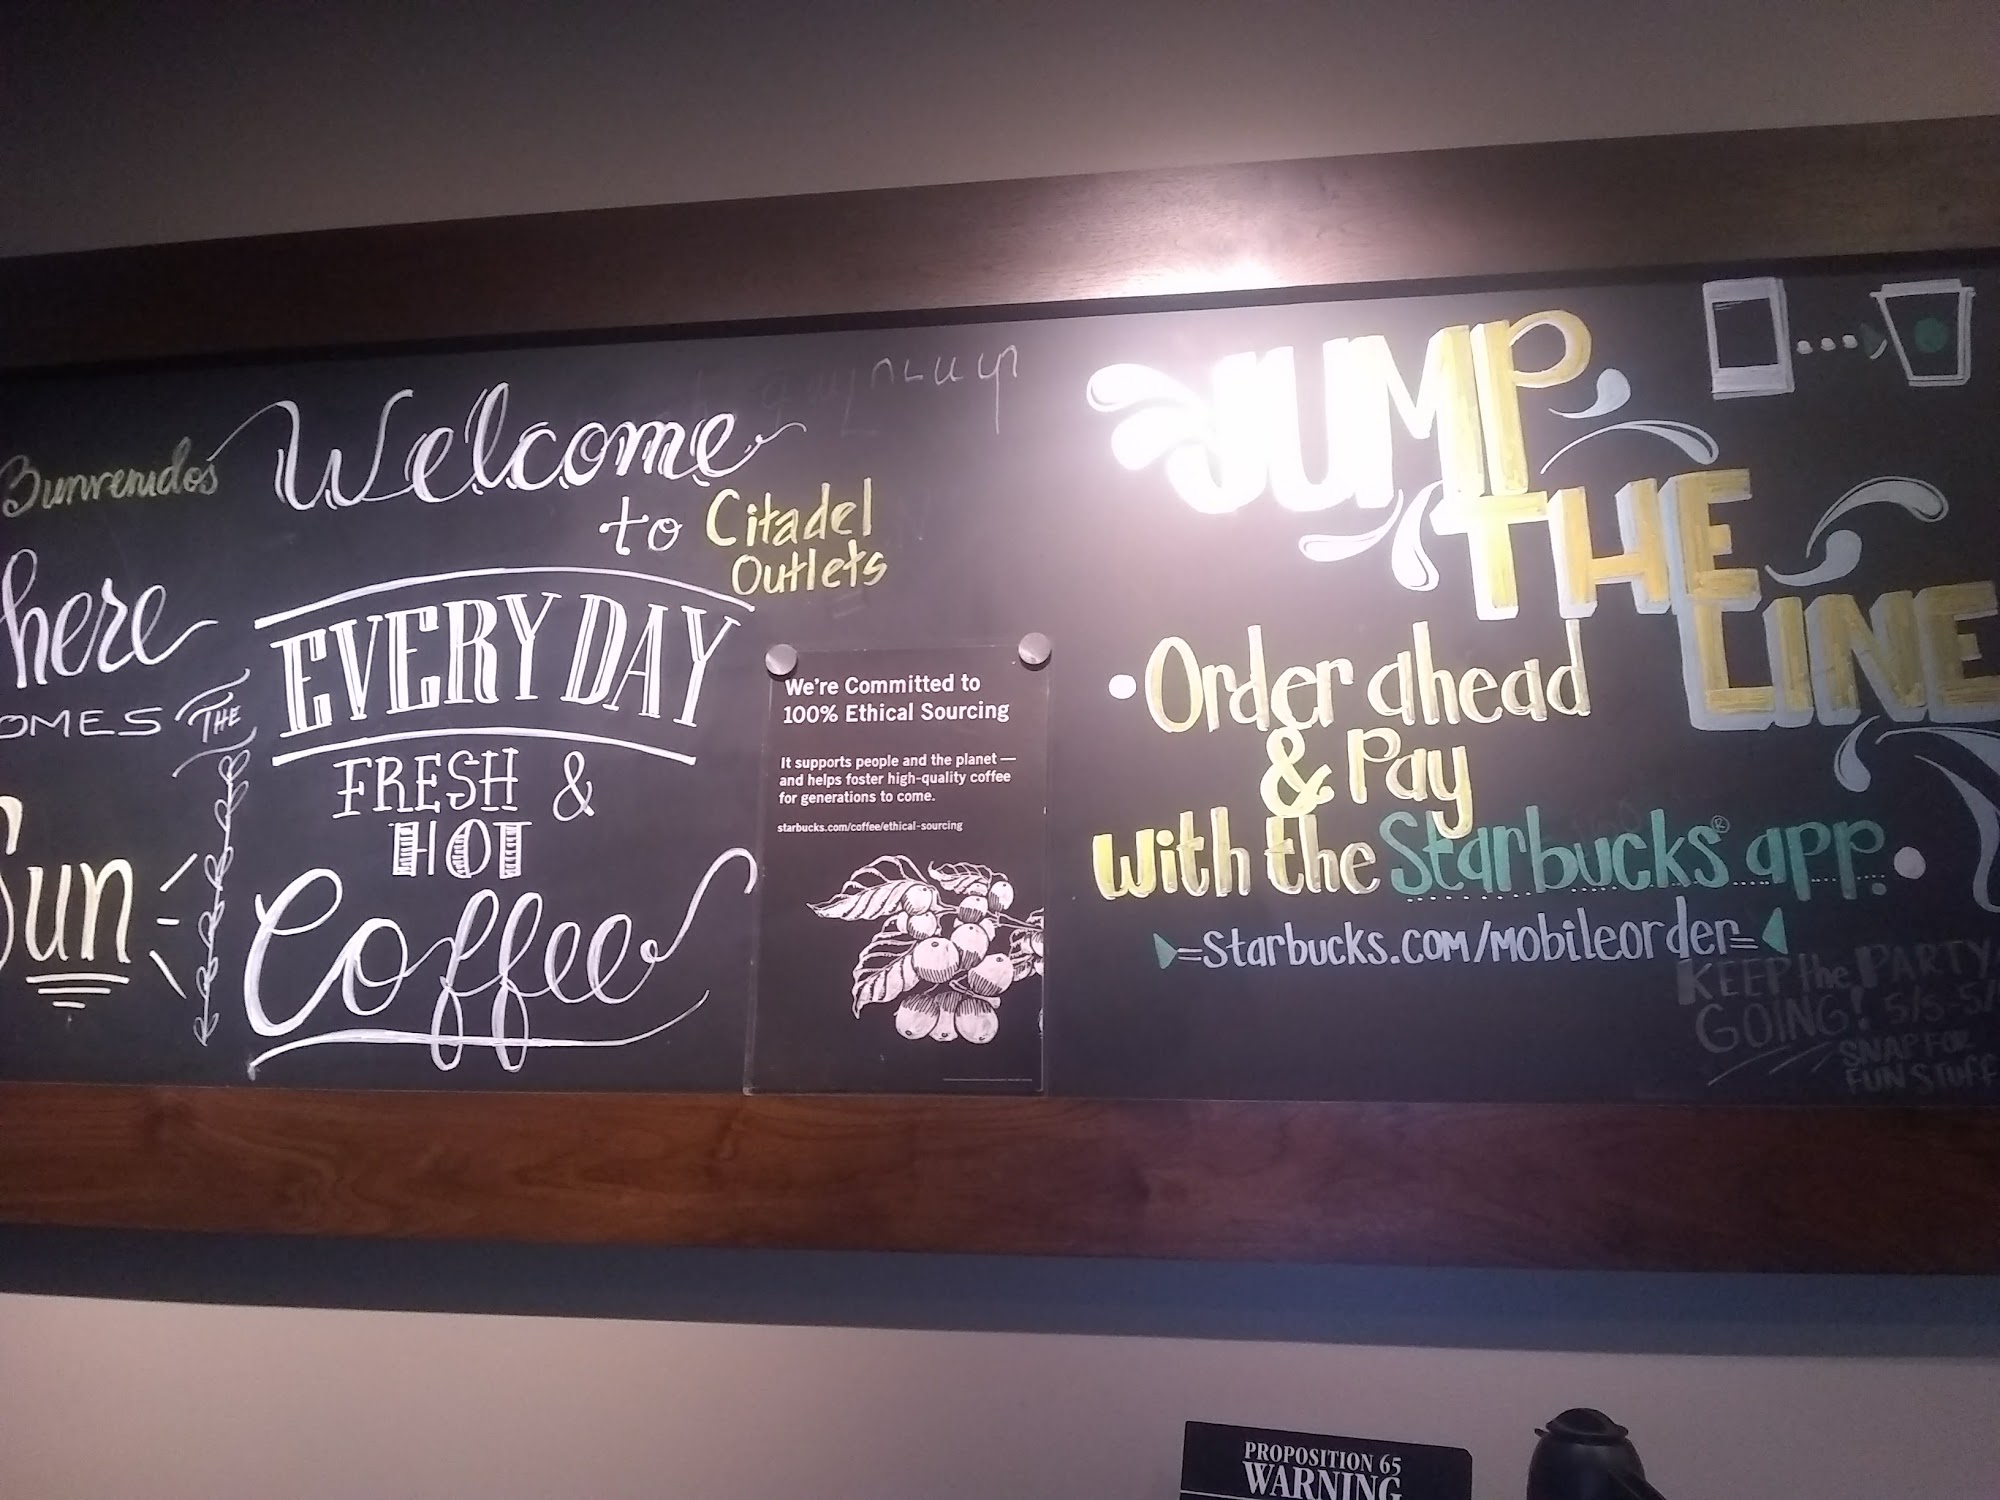 Bunvenidos
Welcome
to Citadel
Outlets
here
OMES THE
Sun
EVERY DAY
FRESH &
HOT
Coffee
We're Committed to
100% Ethical Sourcing
It supports people and the planet —
and helps foster high-quality coffee
for generations to come.
starbucks.com/coffee/ethical-sourcing
JUMP
THE
LINE
Order ahead
& Pay
with the Starbucks® app.
=Starbucks.com/mobileorder=
KEEP the PARTY
GOING! 5/5-5/
SNAP FOR
FUN STUFF
PROPOSITION 65
WARNING